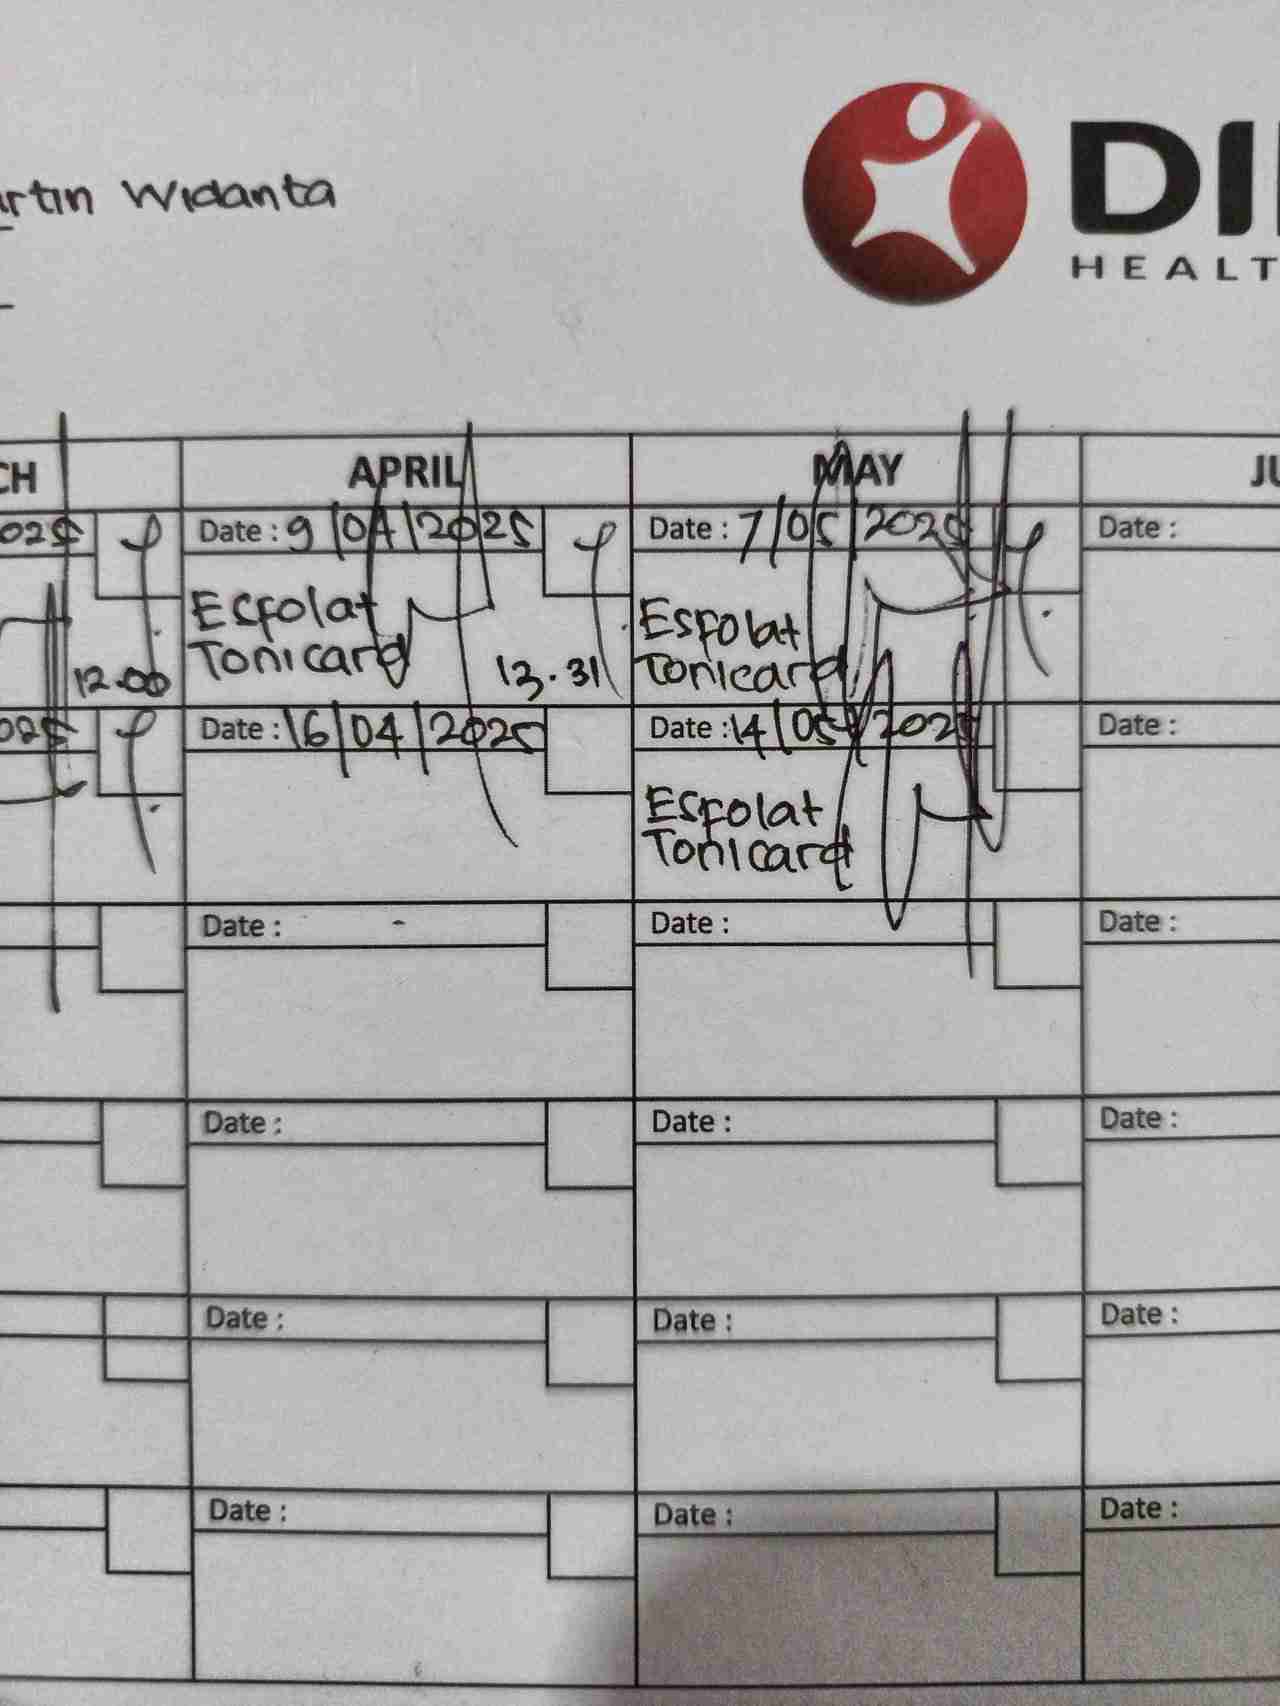 Widanta
HEALT
APRIL
MAY
Date : 9/04/2025
Date : 7/05/2025
Date :
Esfolat
Tonicard
13.31
Esfolat
Tonicard
12.00
Date : 16/04/2025
Date : 14/05/2025
Date :
Esfolat
Tonicard
Date :
Date :
Date :
Date :
Date :
Date :
Date :
Date :
Date :
Date :
Date :
Date :